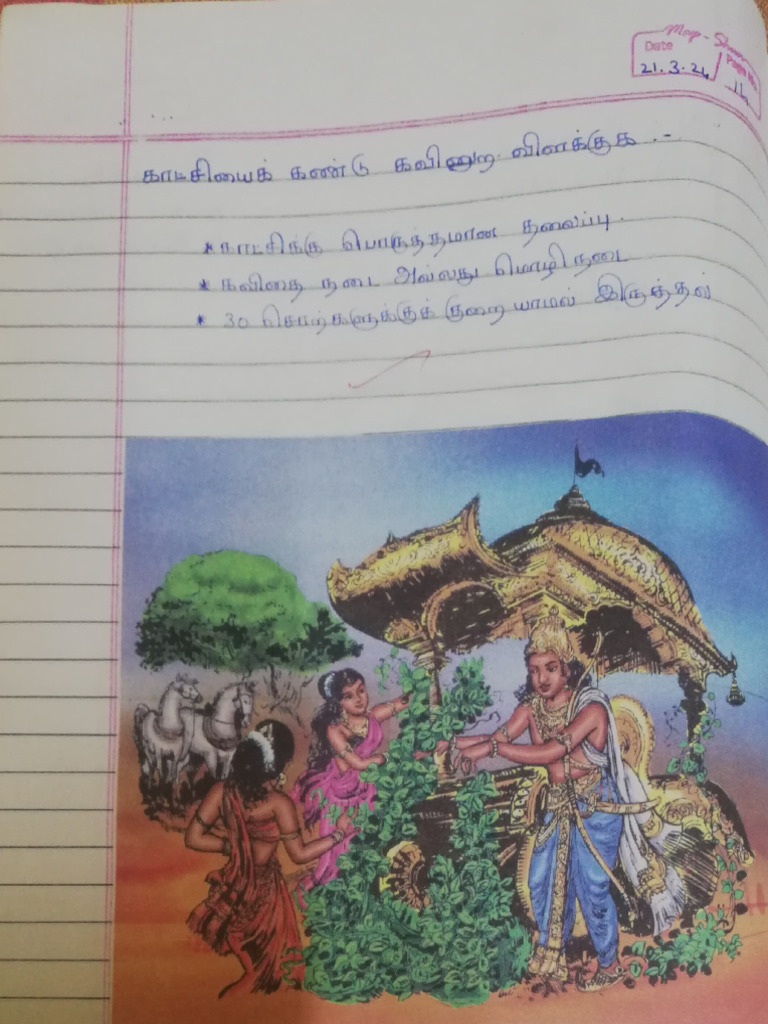 Date
21.3.24
Page No.
காட்சியைக் கண்டு கவினுற விளக்குக :-
* காட்சிக்கு பொருத்தமான தலைப்பு.
* கவிதை நடை அல்லது மொழிநடை
* 30 சொற்களுக்குக் குறையாமல் இருத்தல்